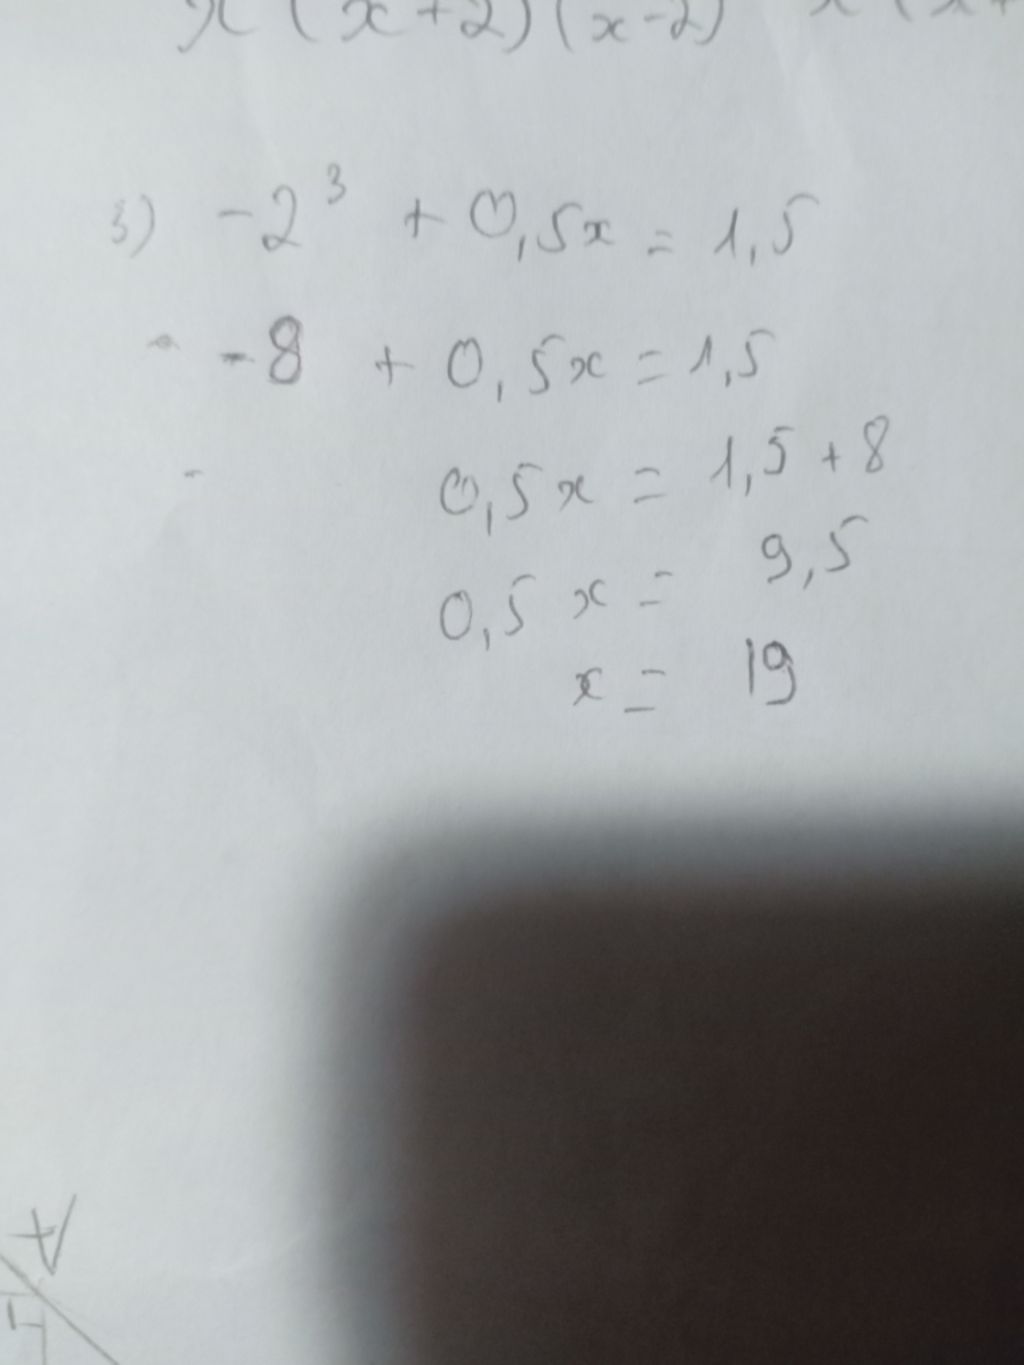 x (x+2)(x-2) x (x+
3) -2³ + 0,5x = 1,5
-8 + 0,5x = 1,5
0,5x = 1,5 + 8
0,5 x = 9,5
x = 19
A